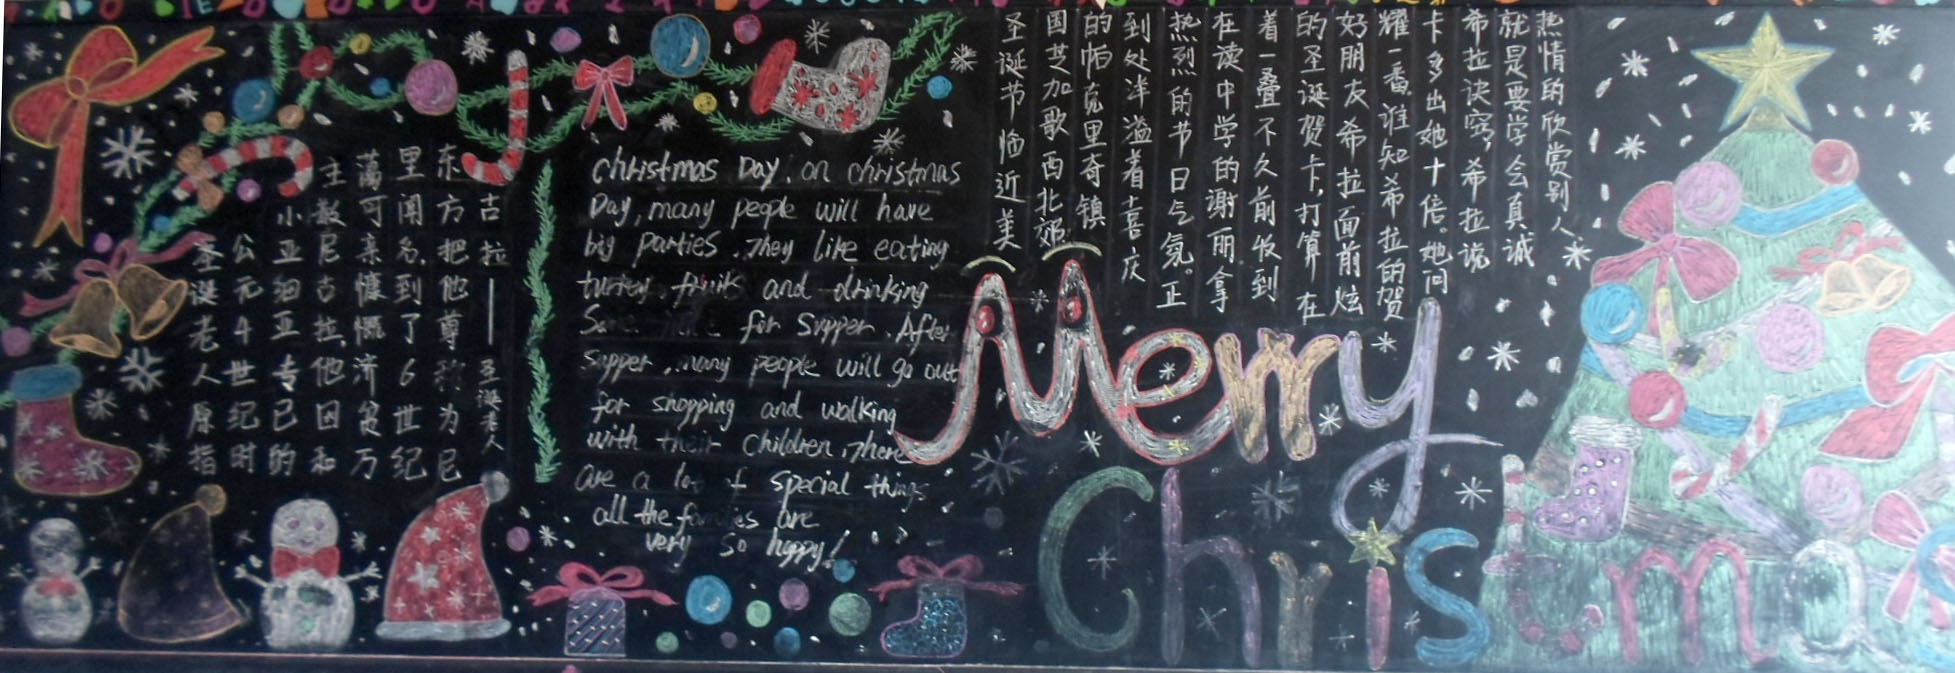 圣诞老人原指
公元4世纪时
小亚细亚专已的
主教尼古拉,他因和
蔼可亲慷慨济贫万
里闻名,到了6世纪
东方把他尊称为尼
古拉——圣诞老人
christmas Day, on christmas
Day, many people will have
big parties. They like eating
turkey, fruits and drinking
for Supper. After
supper, many people will go out
for shopping and walking
with their children, There
are a lot of special things
all the families are
very so happy!
圣诞节临近美
国芝加哥西北郊
的帕克里奇镇
到处洋溢着喜庆
热烈的节日气氛。正
在读中学的谢丽拿
着一叠不久前收到
的圣诞贺卡,打算在
好朋友希拉面前炫
耀一番,谁知希拉的贺
卡多出她十倍。她问
希拉诀窍,希拉说
就是要学会真诚
热情的欣赏别人
Merry
Christma